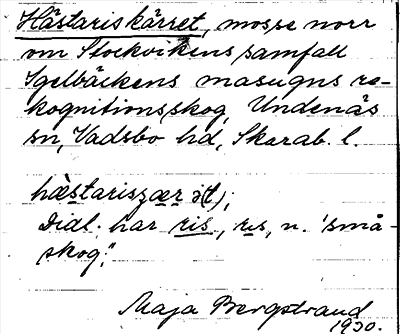 Hästariskärret, mosse norr
om Stockvikens samfäll
Igelbäckens masugns re-
kognitionsskog, Undenäs
sn, Vadsbo hd, Skarab. l.
hæstariszær ə(t);
Dial. har ris, rɩs, n. 'små-
skog'.
Maja Bergstrand
1930.